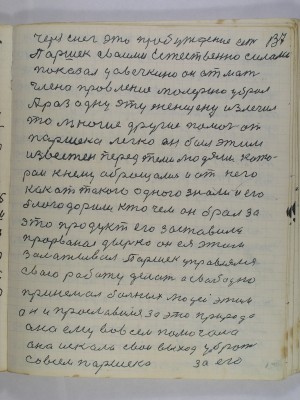 через снег это пробуждение сам 137
Паршек своими естественно силами
показал человечкино он от мат
члена провление молержно убрал
А раз одну эту женщину излечил
то многие другие помог от
паршека легко он был этим
известен перед теми людями кото-
рая к нему обращались и от него
как от такого одного знали и его
благодорили кто чем он брал за
это продукт его заставила
прорваная дверко он ея этим
замативал Паршек управлял
свою работу делат а свабодно
принемал болных людей этим
он и прославился за это природа
она ему вовсем помочала
она искала свой выход убрат
совсем паршека за его